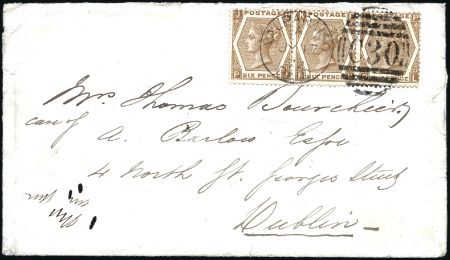 POSTAGE POSTAGE POSTAGE
SIX PENCE SIX PENCE
C30
Mrs Thomas Bourchier
care of A. Barlow Esqre
4 North Gt. Georges Street
Dublin